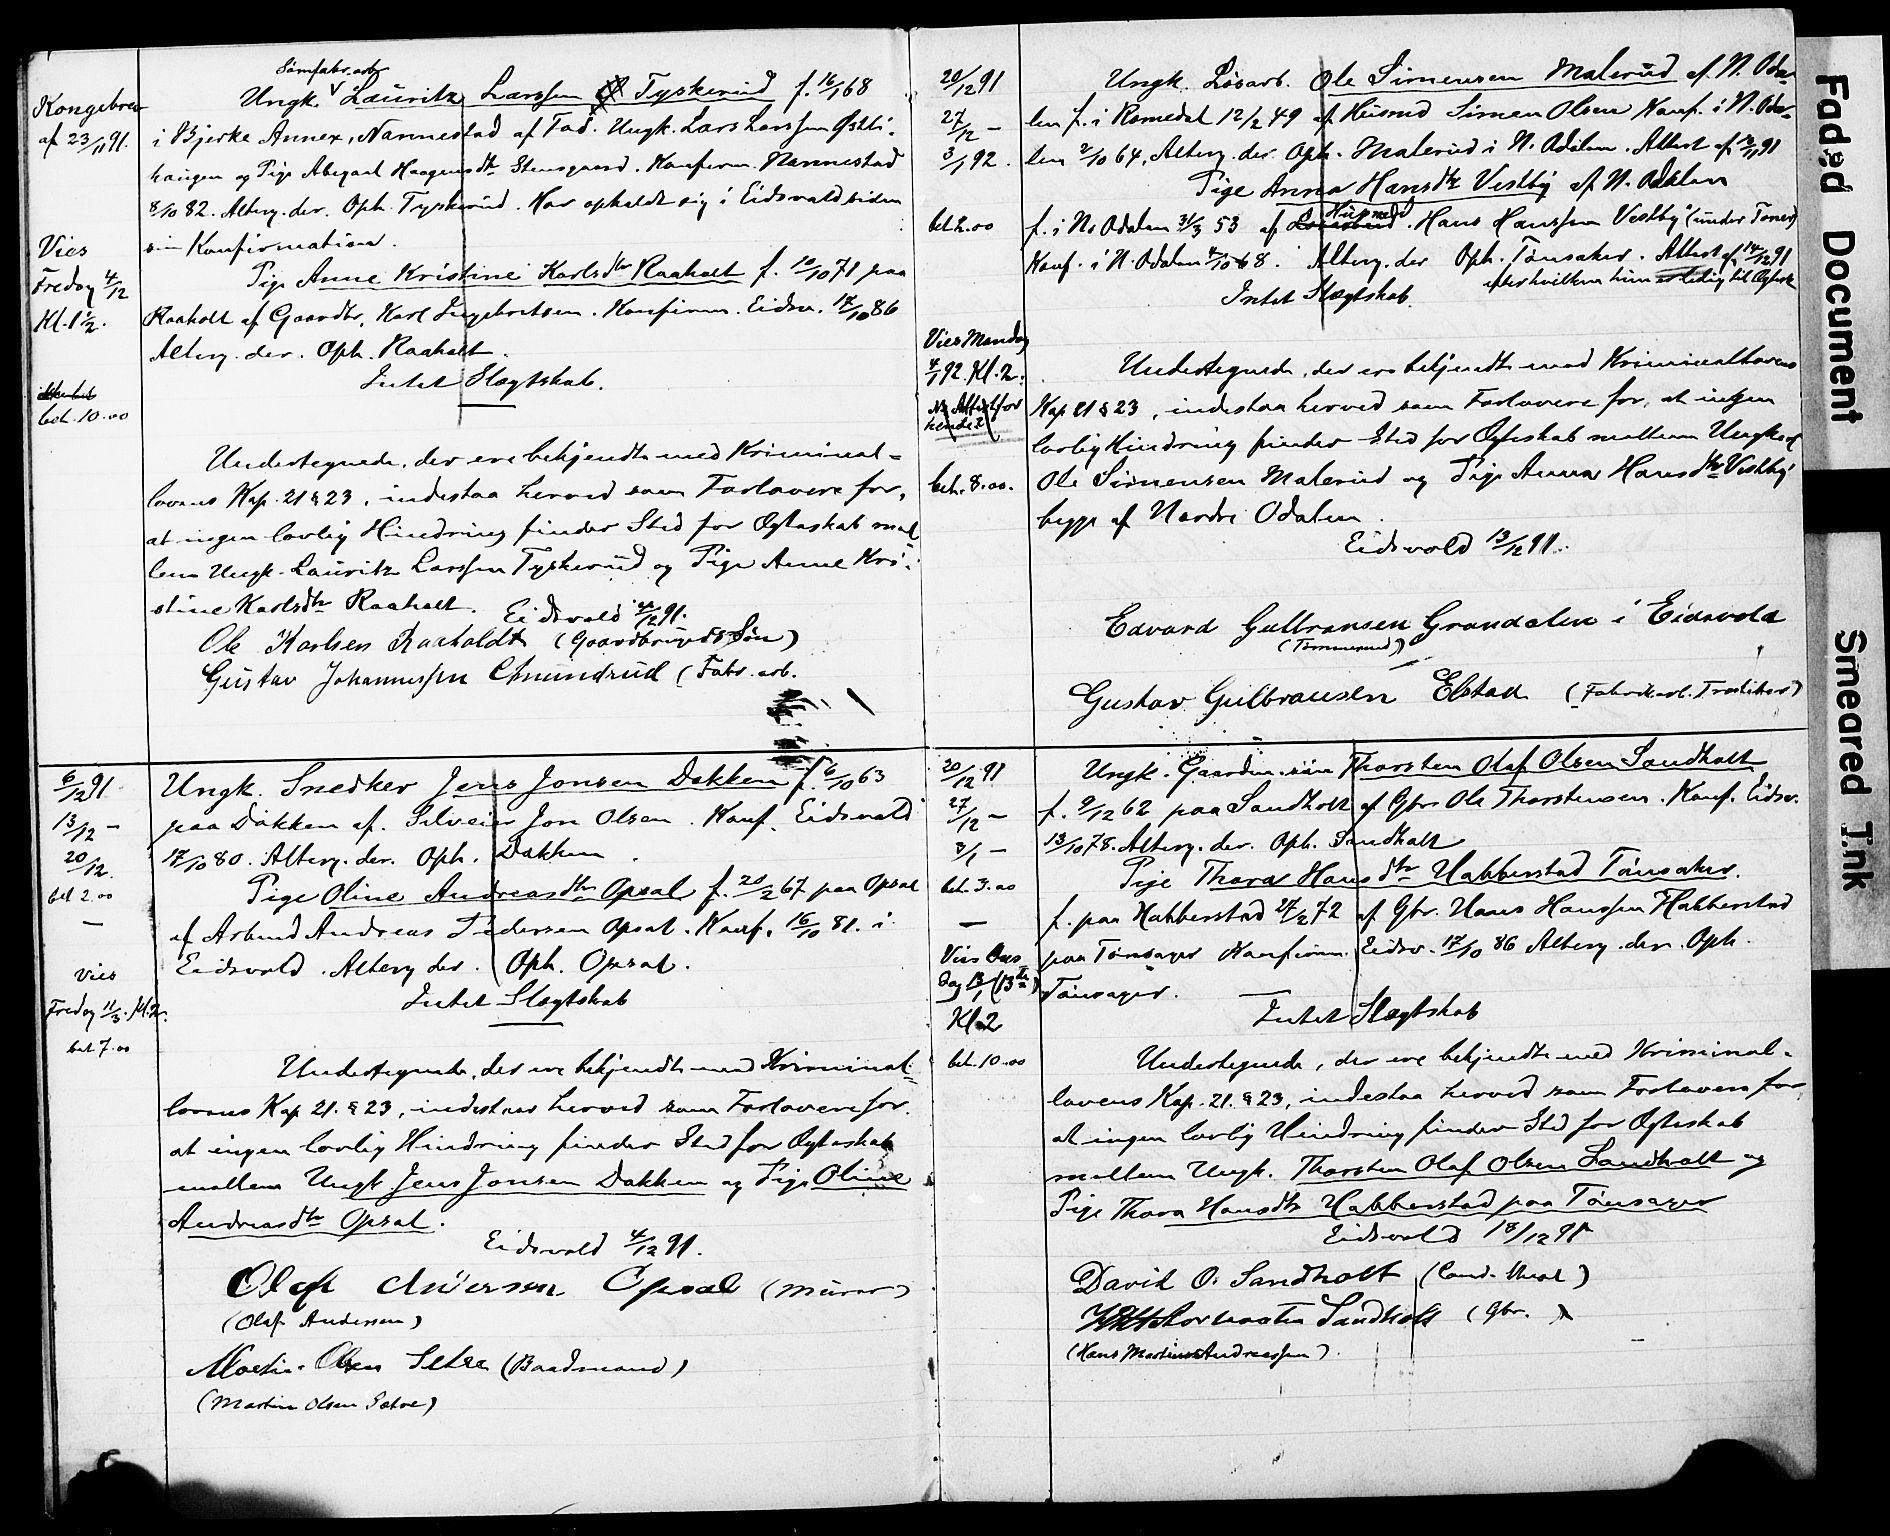 Kongebrev
af 23/11 91.
Vies
Fredag 4/12
Kl. 1½.
bet. 10.00
Sømfabr.arb
Ungk. Lauritz Larssen Tyskerud f. 16/1 68
i Bjerke Annex, Nannestad af Fad. Ungk. Lars Larssen
haugen og Pige Abegael Haagensdtr Stensgaard. Konfirm. Nannestad
8/10 82. Alterg. der. Oph. Tyskerud. Har opholdt sig i Eidsvold siden
sin Konfirmation.
Pige Anne Kristine Karlsdtr Raaholt f. 10/10 71 paa
Raaholt af Gaardbr. Karl Ingebretsen. Konfirm. Eidsv. 17/10 86
Alterg. der. Oph. Raaholt.
Intet Slægtskab.
Undertegnede, der ere bekjendte med Kriminal=
lovens Kap. 21 § 23, indestaa herved som Forlovere for,
at ingen lovlig Hindring finder Sted for Ægteskab mel
lem Ungk. Lauritz Larssen Tyskerud og Pige Anne Kri-
stine Karlsdtr Raaholt.
Eidsvold 4/12 91.
Ole Karlsen Raaholdt (Gaardbrugers Søn)
Gustav Johannessen Amundrud (Fabr. arb.
6/12 91
13/12 –
20/12.
bet 2.00
–
Vies
Fredag 11/3. Kl. 2.
bet 7.00
Ungk. Snedker Jens Jonsen Dakken f. 6/10 63
paa Dakken af. Selveier Jon Olsen. Konf. Eidsvold
17/10 80. Alterg. der. Oph. Dakken.
Pige Oline Andreasdtr Opsal f. 20/2 67 paa Opsal
af Arbmd Andreas Pedersen Opsal. Konf. 16/10 81. i
Eidsvold. Alterg der. Oph. Opsal.
Intet Slægtskab
Undertegnede, der ere bekjendte med Kriminal=
lovens Kap 21. § 23, indestaar herved som Forlovere for.
at ingen lovlig Hindring finder Sted for Ægteskab
mellem Ungk Jens Jonsen Dakken og Pige Oline
Andreasdtr Opsal.
Eidsvold 4/12 91.
Olaf Andersen Opsal (Murer)
(Olaf Andersen)
Martin Olsen Setre (Baadmand)
(Martin Olsen Sætre)
20/12 91
27/12 –
3/1 92.
bet 2.00
Vies Mandag
4/1 92. Kl. 2.
NB Attest for
hende
bet. 8.00.
Ungk. Løsarb. Ole Simensen Malerud af N. Oda-
len f. i Romedal 12/2 49 af Husmd Simen Olsen Konf. i N. Oda-
len 2/10 64, Alterg. der. Oph. Malerud i N. Odalen. Attest af 91
Pige Anna Hansdtr Vestby af N. Odalen
f. i N. Odalen 31/3 53 af Husmd Hans Hanssen Vestby (under
Konf. i N. Odalen 4/10 68. Alterg. der Oph. Tønsaker. Attest af 14/12 91
efter hvilken hun er ledig til Ægtesk
Intet Slægtskab.
Undertegnede, der ere bekjendte med Kriminallovens
Kap. 21 § 23, indestaa herved som Forlovere for, at ingen
lovlig Hindring finder Sted for Ægteskab mellem Ungkarl
Ole Simensen Malerud og Pige Anna Hansdtr Vestby
begge af Nordre Odalen.
Eidsvold 13/12 91.
Edvard Gulbransen Grandalen i Eidsvold
(Tømmermd)
Gustav Gulbransen Elstad (Fabrikarb. Træsliber)
20/12 91
27/12 –
3/1 –
bet. 3.00
–
Vies Ons
dag 13/1 (13te)
Kl. 2
bet. 10.00
Ungk. Gaardm.søn Thorsten Olaf Olsen Sandholt
f. 9/12 62 paa Sandholt af Gbr. Ole Thorstensen. Konf. Eidsv.
13/10 78. Alterg. der. Oph. Sandholt
Pige Thora Hansdtr Habberstad Tønsaker.
f. paa Habberstad 27/2 72 af Gbr. Hans Hanssen Habberstad
paa Tønsager Konfirm. Eidsv. 17/10 86 Alterg. der. Oph.
Tønsager.
Intet Slægtskab
Undertegnede, der ere bekjendte med Kriminal-
lovens Kap. 21. § 23, indestaa herved som Forlovere for
at ingen lovlig Hindring finder Sted for Ægteskab
mellem Ungk. Thorsten Olaf Olsen Sandholt og
Pige Thora Hansdtr Habberstad paa Tønsager
Eidsvold 18/12 91
David O. Sandholt (Cand. theol)
Sandholt (Gbr.)
(Hans Martinus Andreassen).
Faded Document
Smeared Ink